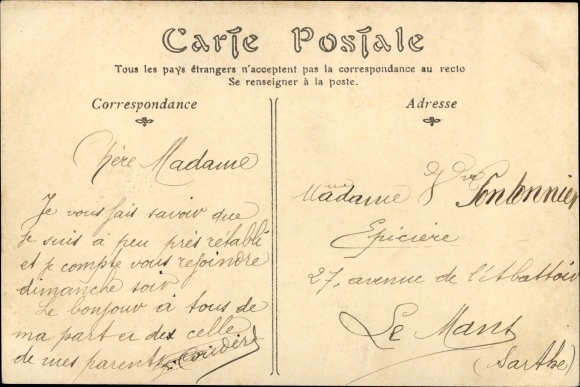 Carte Postale
Tous les pays étrangers n'acceptent pas la correspondance au recto
Se renseigner à la poste.
Correspondance
Chère Madame
Je vous fais savoir que
je suis à peu près rétabli
et je compte vous rejoindre
dimanche soir
Le bonjour à tous de
ma part et de celle
de mes parents
Adresse
Madame Vve Fontonnier
Epicière
27, avenue de l'Abattoir
Le Mans
(Sarthe)